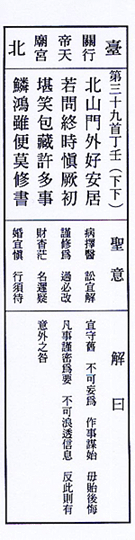 臺北
關帝廟
行天宮
第三十九首丁壬（下下）
北山門外好安居
若問終時愼厥初
堪笑包藏許多事
鱗鴻雖便莫修書
聖意
病擇醫 訟宜解
謹修為 過必改
財杳茫 名遲疑
婚宜愼 行須待
解曰
宜守舊 不可妄為 作事謀始 毋貽後悔
凡事謹密為要 不可浪透信息 反此則有
意外之咎